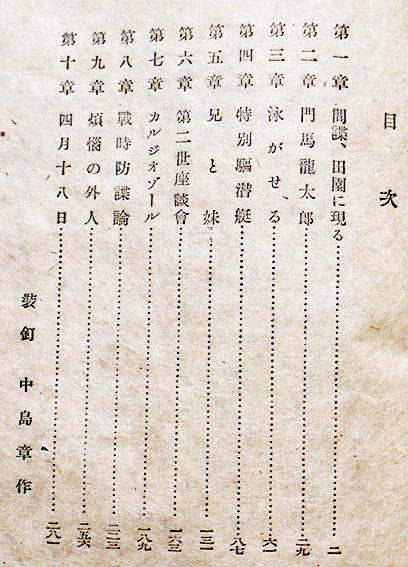 目次
第一章 間諜、田園に現る……二
第二章 門馬龍太郎……二九
第三章 泳がせる……六一
第四章 特別驅潜艇……八七
第五章 兄と妹……一三一
第六章 第二世座談會……一六三
第七章 カルジオゾール……一八九
第八章 戰時防諜論……二二三
第九章 煩惱の外人……二五六
第十章 四月十八日……二八一
裝釘 中島章作